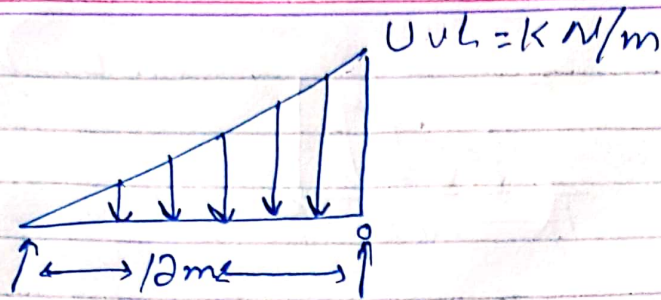 UvL = K N/m
12m